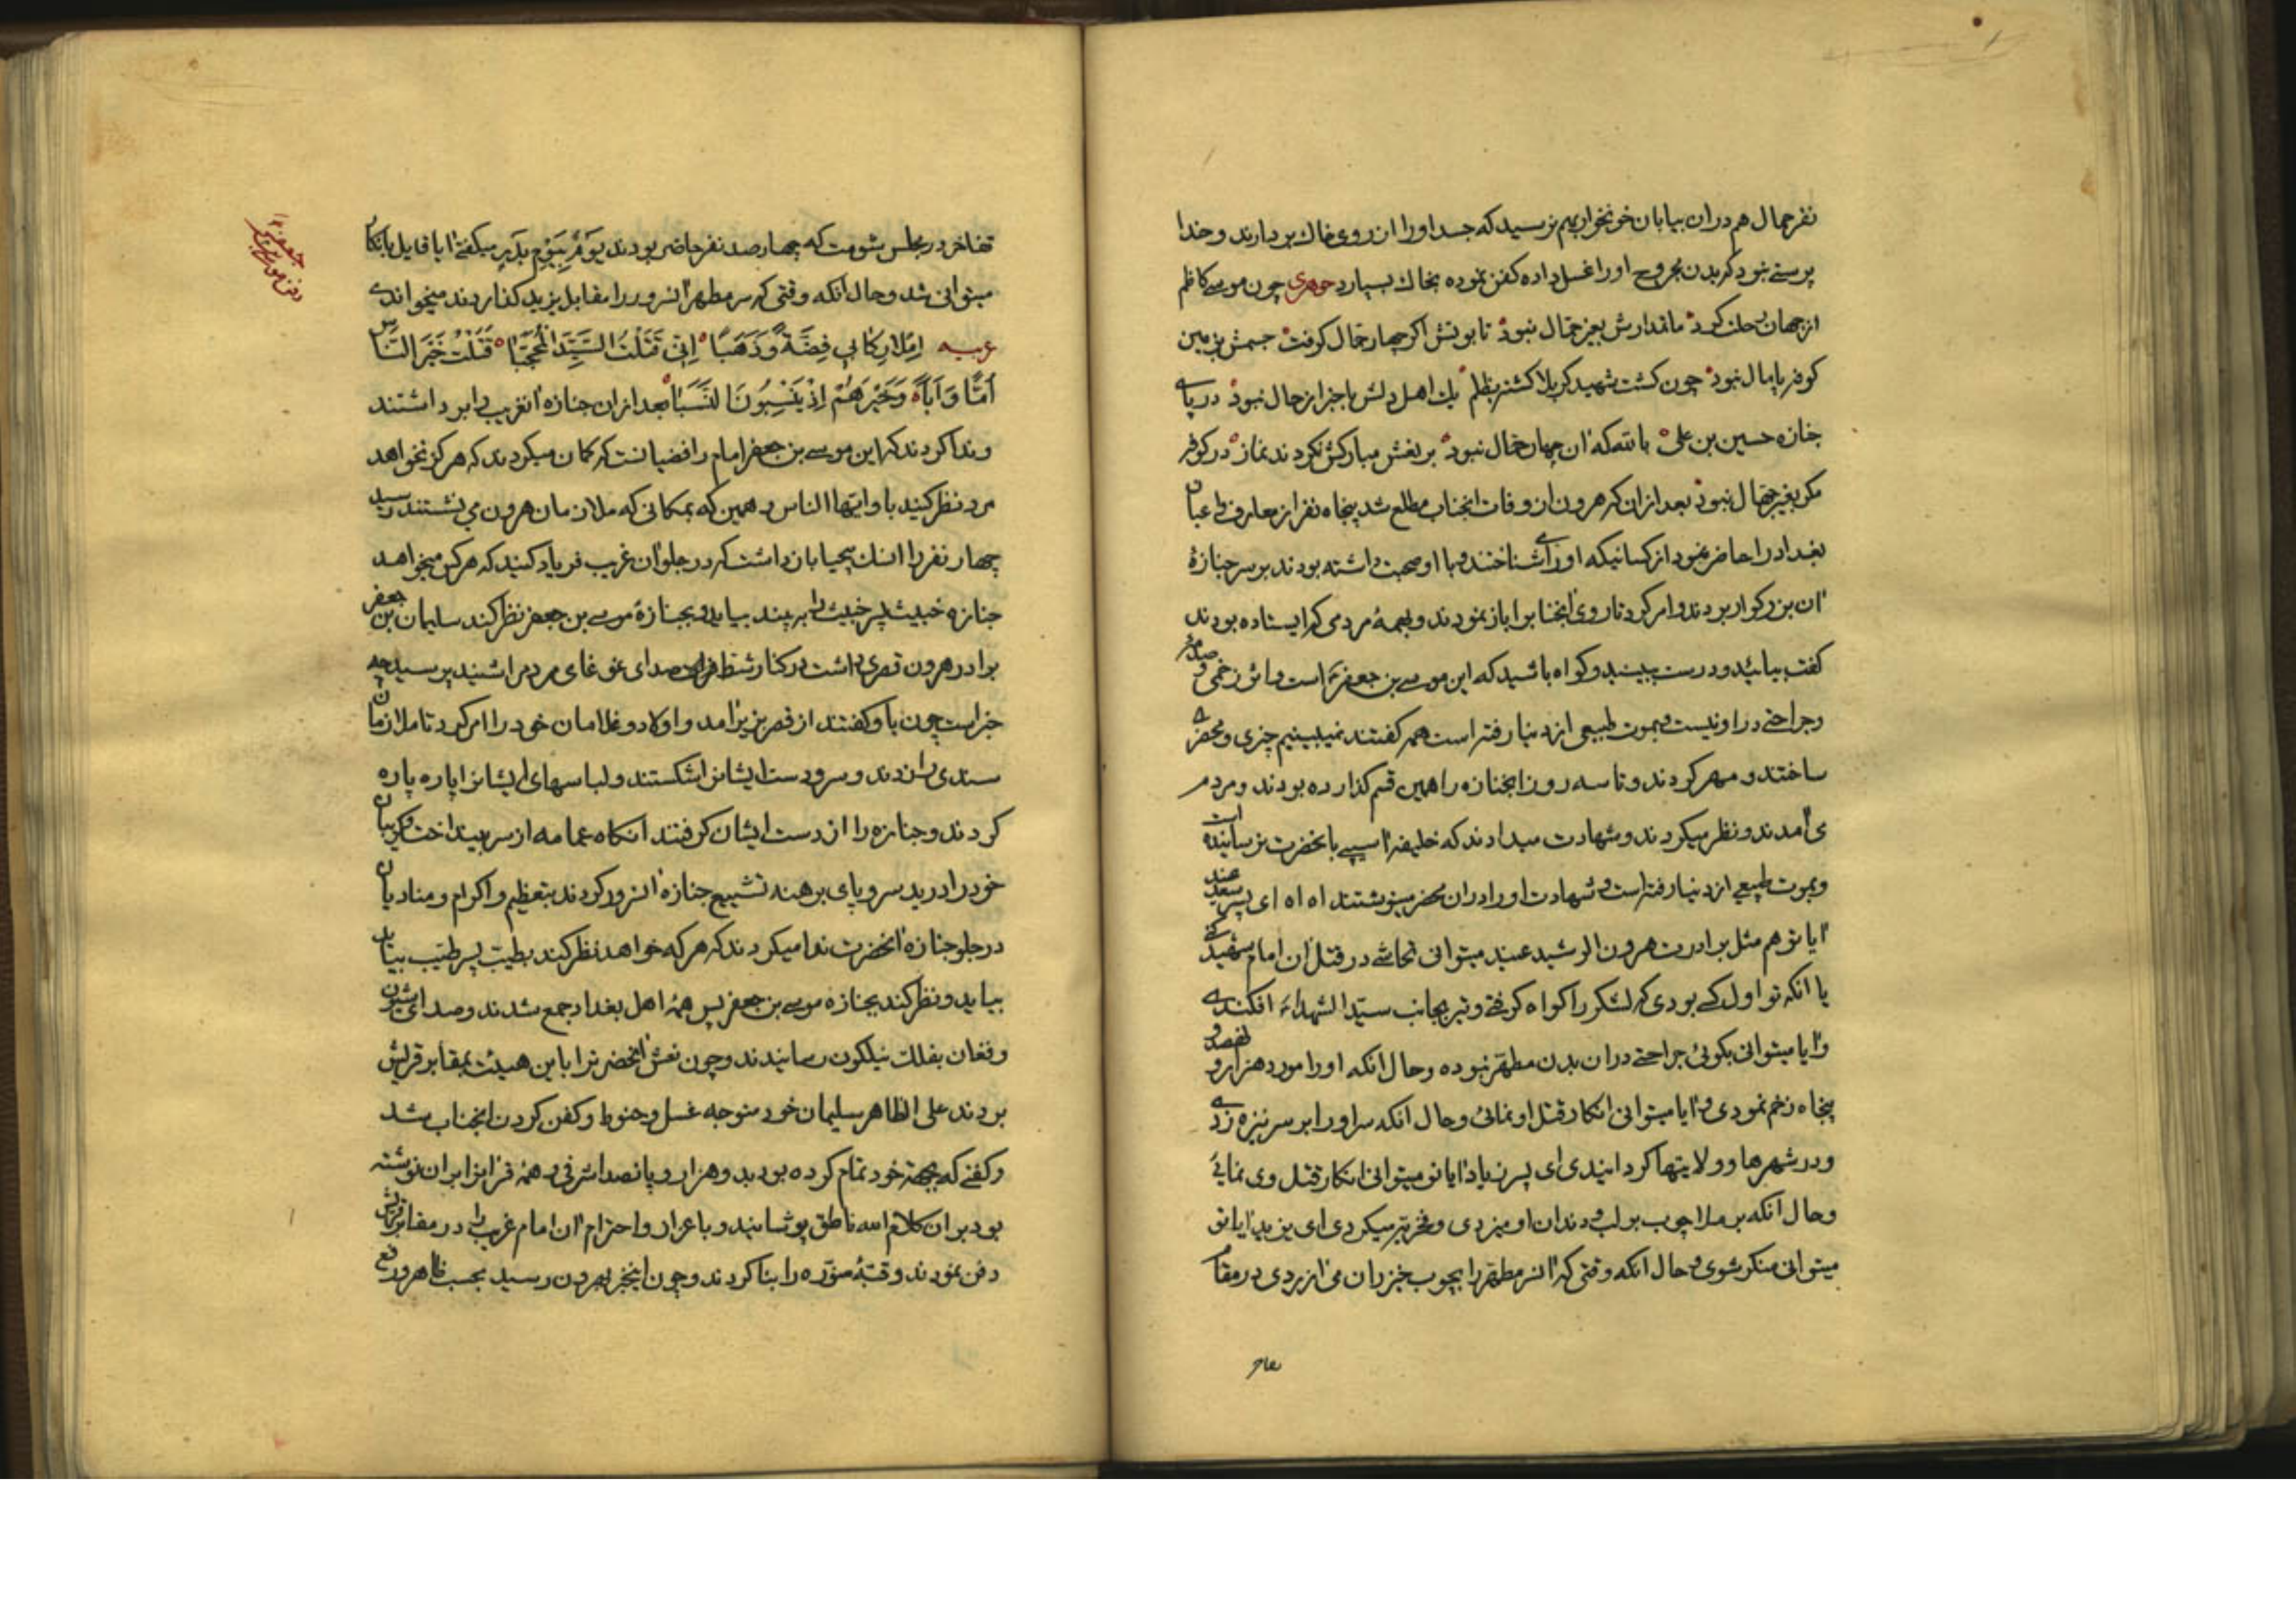 نفر حمال هم دران بیابان خونخوار بهم نرسید که جسد او را از روی خاك بردارند و خدا
پرستے نبود که بدن مجروح او را غسل داده کفن نموده بخاك بسپارد جوهری چون موسے کاظم
از جهان رحلت کرد ماتمدارش بغیر حمال نبود تابوتش اگر چهار حمال گرفت جسمش بزمین
کوفه پامال نبود چون کشت شهید کربلا کشته بظلم یك اهل دلش با خبر از حال نبود در پای
جنازه حسین بن علی بالله که ان چهار حمال نبود بر نعش مبارکش نکردند نماز در کوفه
مکر بغیر جهال نبود بعد ازان که هرون از وفات انجناب مطلع شد پنجاه نفر از معارف و اعیان
بغداد را حاضر نمود از کسانیکه او را می شناختند و با او صحبت داشته بودند بر سر جنازهٔ
ان بزرکوار بردند و امر کرد تا روی انجناب را باز نمودند و بهمهٔ مردمی که ایستاده بودند
گفت بیائید و درست ببینید و کواه باشید که این موسے بن جعفر است و اثر زخمی و صدمهٔ
و جراحتے در او نیست و بموت طبیعی از دنیا رفته است همه گفتند نمیبینیم چیزی و محضرے
ساختند و مهر کردند و تا سه روز انجنازه را همین قسم گذارده بودند و مردم
می امدند و نظر میکردند و شهادت میدادند که خلیفه اسیبے بانحضرت نرسانیده است
و بموت طبیعے از دنیا رفته است و شهادت او را دران محضر مینوشتند اه اه ای پسر سعد عنید
ایا تو هم مثل برادرت هرون الرشید عنید میتوانی تحاشے در قتل ان امام شهید کنے
یا انکه تو اول کسے بودی که لشکر را کواه کرفتے و تیر بجانب سیّد الشهداء افکندے
و ایا میتوانی بکوئی جراحتے دران بدن مطهّر نبوده و حال انکه او را مورد هزار و نهصد و
پنجاه زخم نمودی و ایا میتوانی انکار قتل او نمائی و حال انکه سر او را بر سر نیزه زدے
و در شهرها و ولایتها کردانیدی ای پسر زیاد ایا تو میتوانی انکار قتل وی نمایے
و حال انکه بر ملا چوب بر لب و دندان او میزدی و فخریّه میکردی ای یزید ایا تو
میتوانی منکر شوی و حال انکه وقتی که ان سر مطهّر را بچوب خیزران می ازردی در مقام
تفاخر در مجلس شومت که چهارصد نفر حاضر بودند یَومٌ بِیَومِ بَدرٍ میکفتے ایا قایل بانکار
میتوانی شد و حال انکه وقتی که سر مطهر انسرور را مقابل یزید کذاردند میخواندے
عربیه اِملَأ رِکابی فِضَّةً وَ ذَهَبًا اِنّی قَتَلتُ السَّیِّدَ المُحَجَّبا قَتَلتُ خَیرَ النّاسِ
اُمًّا وَ اَبًا وَ خَیرَهُم اِذ یَنسِبُونَ النَّسَبا بعد ازان جنازه انغریب را برداشتند
و ندا کردند که این موسے بن جعفر امام رافضیانست که کمان میکردند که هرکز نخواهد
مرد نظر کنید باو ایّها الناس و همین که بمکانی که ملازمان هرون می نشستند رسید
چهار نفر را انسك بیحیا بازداشت که در جلو ان غریب فریاد کنید که هرکس میخواهد
جنازه خبیث پسر خبیث را به بیند بیاید و بجنازهٔ موسے بن جعفر نظر کند سلیمان بن جعفر
برادر هرون قصری داشت در کنار شط فرات صدای غوغای مردم را شنید پرسید چه
خبر است چون باو کفتند از قصر بزیر امد و اولاد و غلامان خود را امر کرد تا ملازمان
سندی را زدند و سر و دست ایشانرا شکستند و لباسهای ایشانرا پاره پاره
کردند و جنازه را از دست ایشان کرفتند انکاه عمامه از سر بینداخت و کریبان
خود را درید سر و پای برهنه تشییع جنازه انسرور کردند بتعظیم و اکرام و منادیان
در جلو جنازه انحضرت ندا میکردند که هر که خواهد نظر کند بطیّب پسر طیّب بیاید
بیاید و نظر کند بجنازه موسے بن جعفر پس همهٔ اهل بغداد جمع شدند و صدای شیون
و فغان بفلك نیلکون رسانیدند و چون نعش انحضرترا باین هیئت بمقابر قریش
بردند علی الظاهر سلیمان خود متوجه غسل و حنوط و کفن کردن انجناب شد
و کفنے که بجهة خود تمام کرده بود بدو هزار و پانصد اشرفی و همهٔ قرانرا بران نوشته
بود بران کلام الله ناطق پوشانید و باعزاز و احترام ان امام غریب را در مقابر قریش
دفن نمودند و قبّهٔ منوّره را بنا کردند و چون اینخبر بهرون رسید بحسب ظاهر و رفع